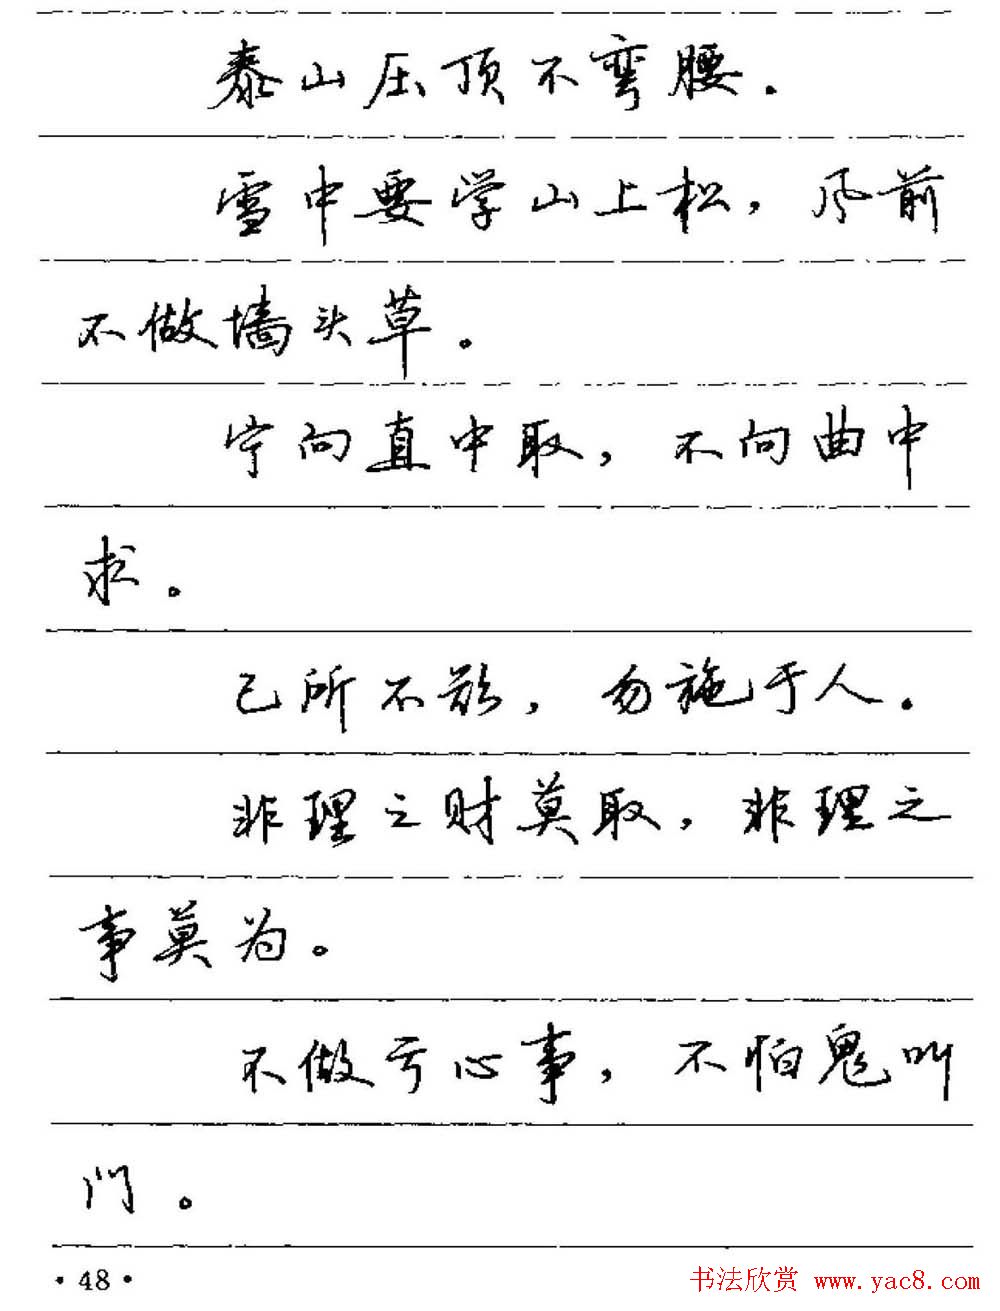 泰山压顶不弯腰.
雪中要学山上松，风前
不做墙头草。
宁向直中取，不向曲中
求。
己所不欲，勿施于人。
非理之财莫取，非理之
事莫为。
不做亏心事，不怕鬼叫
门。
·48·
书法欣赏 www.yac8.com